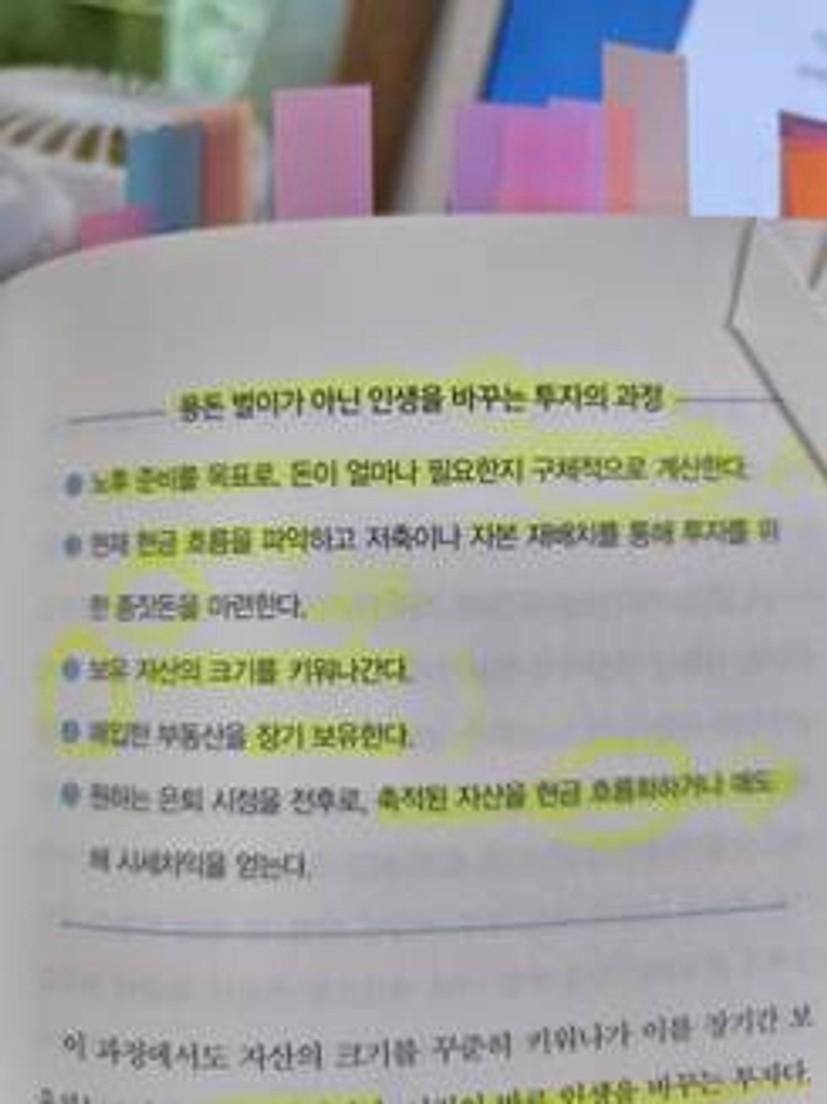 용돈 벌이가 아닌 인생을 바꾸는 투자의 과정
노후 준비를 목표로, 돈이 얼마나 필요한지 구체적으로 계산한다.
현재 현금 흐름을 파악하고 저축이나 자본 재배치를 통해 투자를 위
한 종잣돈을 마련한다.
보유 자산의 크기를 키워나간다.
매입한 부동산을 장기 보유한다.
원하는 은퇴 시점을 전후로, 축적된 자산을 현금 흐름화하거나 매도
해 시세차익을 얻는다.
이 과정에서도 자산의 크기를 꾸준히 키워나가 이를 장기간 보
바로 인생을 바꾸는 투자다.